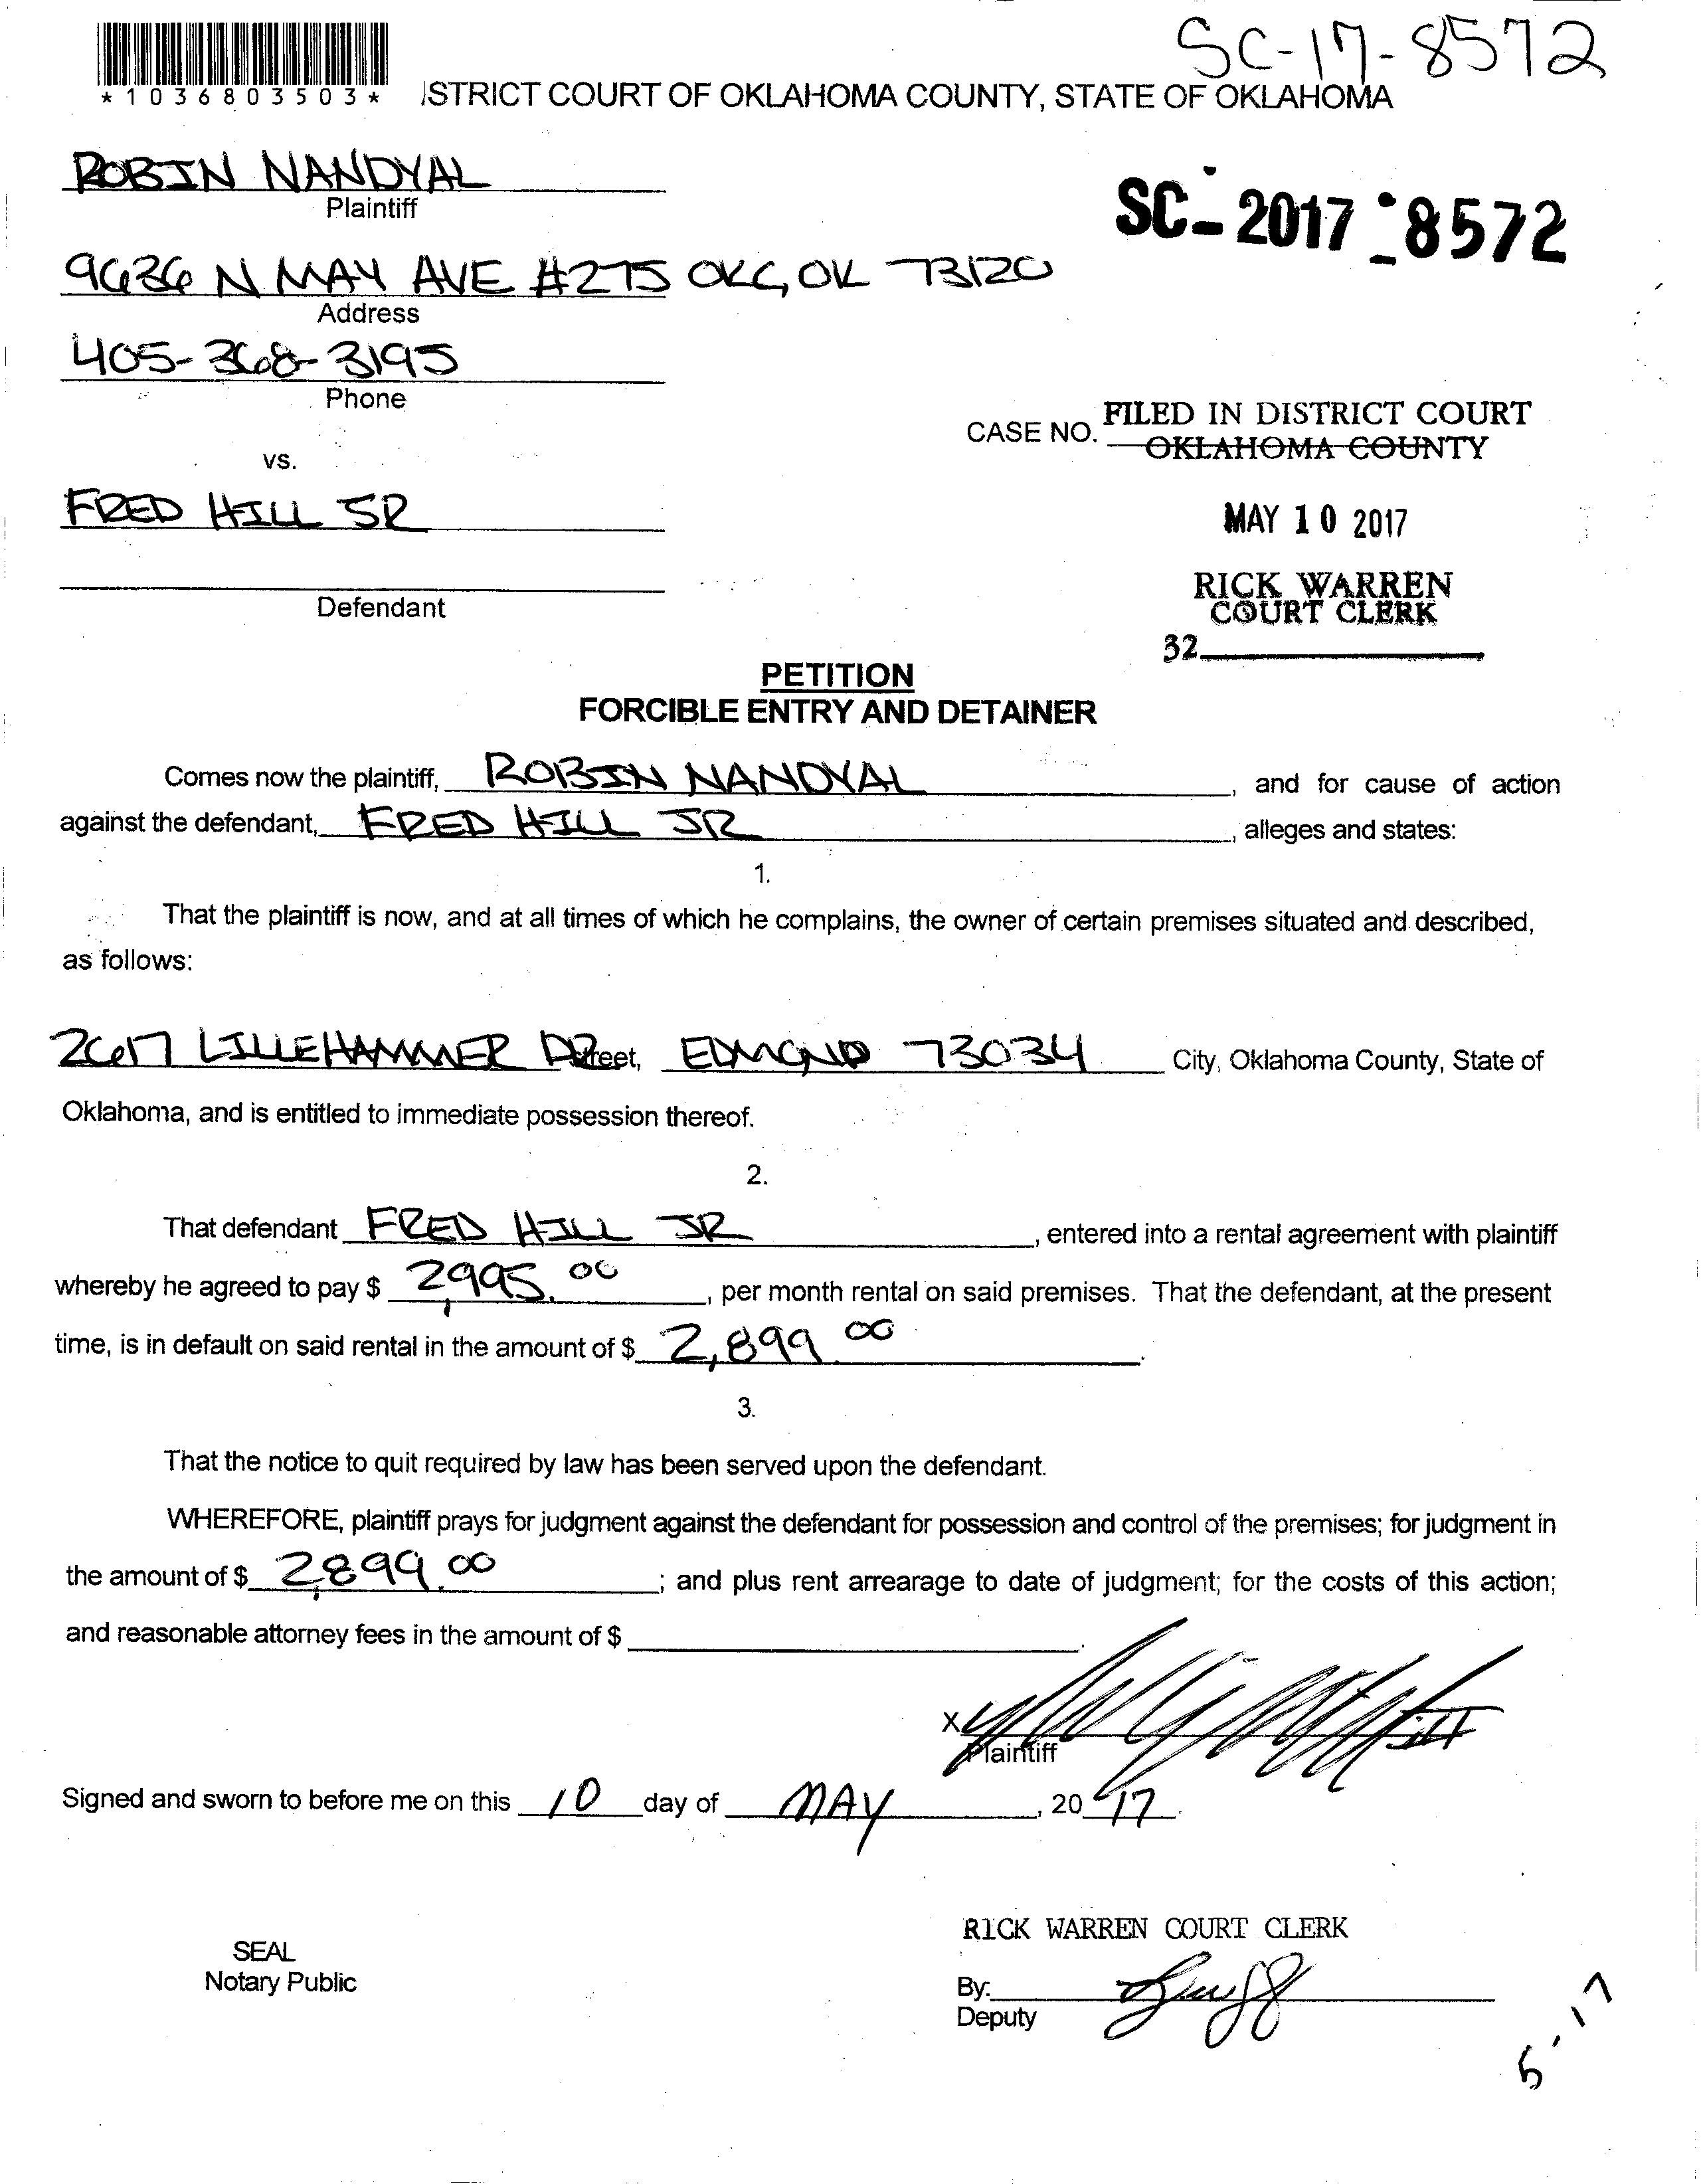 SC-17-8572
*1036803503*
ISTRICT COURT OF OKLAHOMA COUNTY, STATE OF OKLAHOMA
ROBIN NANDYAL
Plaintiff
SC-2017-8572
9636 N MAY AVE #275 OKC, OK 73120
Address
405-368-3195
Phone
CASE NO.
FILED IN DISTRICT COURT
OKLAHOMA COUNTY
vs.
FRED HILL JR
MAY 10 2017
Defendant
RICK WARREN
COURT CLERK
32
PETITION
FORCIBLE ENTRY AND DETAINER
Comes now the plaintiff, ROBIN NANDYAL, and for cause of action
against the defendant, FRED HILL JR, alleges and states:
1.
That the plaintiff is now, and at all times of which he complains, the owner of certain premises situated and described,
as follows:
2617 LILLEHAMMER DR Street, EDMOND 73034 City, Oklahoma County, State of
Oklahoma, and is entitled to immediate possession thereof.
2.
That defendant FRED HILL JR, entered into a rental agreement with plaintiff
whereby he agreed to pay $ 2,995.00, per month rental on said premises. That the defendant, at the present
time, is in default on said rental in the amount of $ 2,899.00.
3.
That the notice to quit required by law has been served upon the defendant.
WHEREFORE, plaintiff prays for judgment against the defendant for possession and control of the premises; for judgment in
the amount of $ 2,899.00; and plus rent arrearage to date of judgment; for the costs of this action;
and reasonable attorney fees in the amount of $
X
Plaintiff
Signed and sworn to before me on this 10 day of MAY, 2017.
RICK WARREN COURT CLERK
SEAL
Notary Public
By:
Deputy
5-17